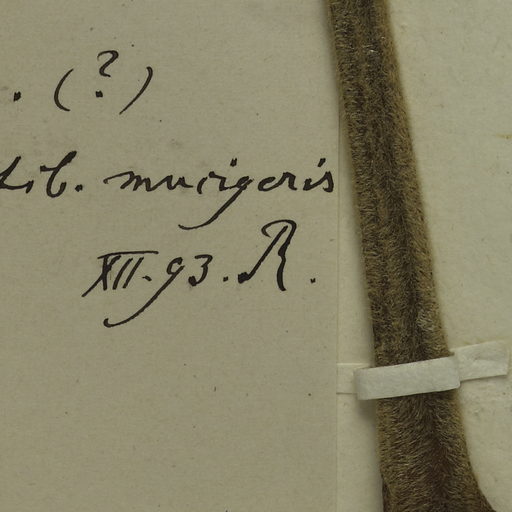 . (?)
fib. mucigeris
XII. 93. R.